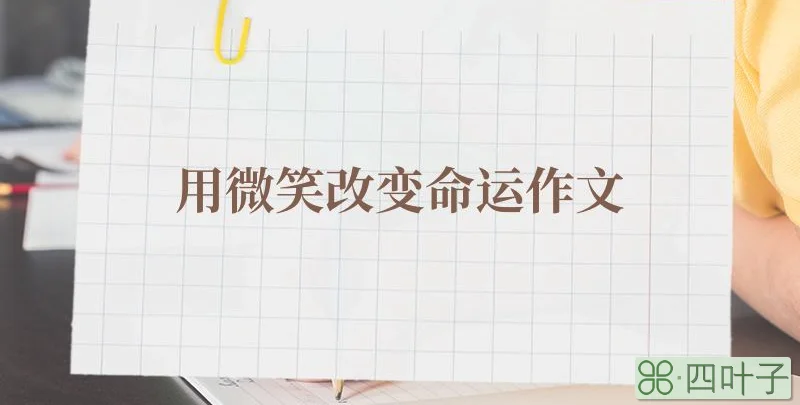 用微笑改变命运作文
四叶子